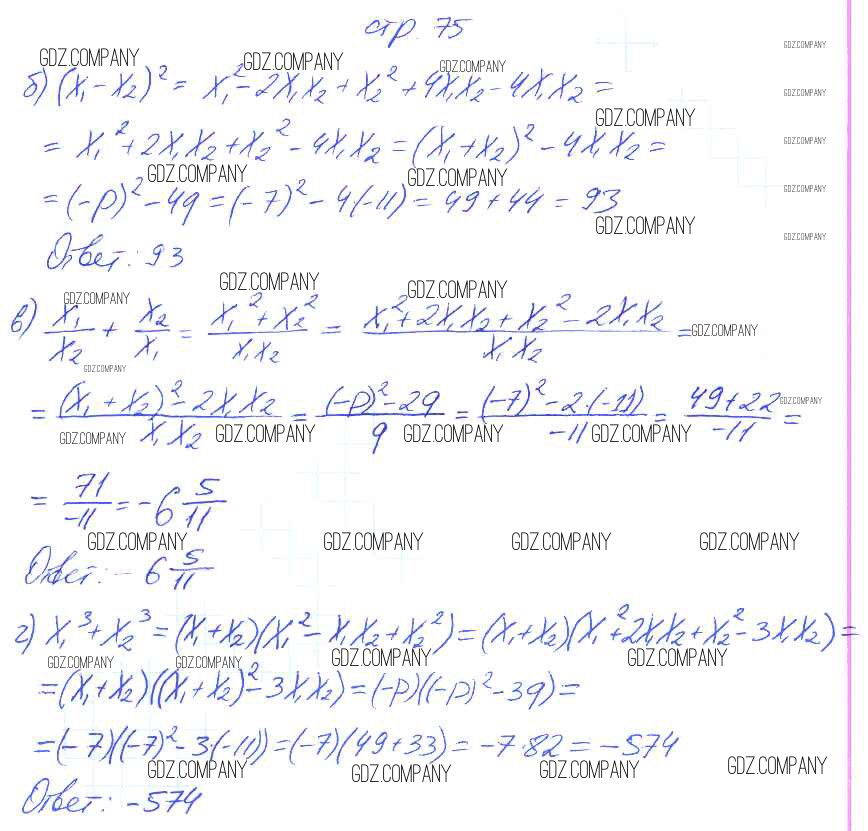 стр. 75
GDZ.COMPANY GDZ.COMPANY GDZ.COMPANY GDZ.COMPANY
б) (x₁ - x₂)² = x₁² - 2x₁x₂ + x₂² + 4x₁x₂ - 4x₁x₂ =
GDZ.COMPANY GDZ.COMPANY
= x₁² + 2x₁x₂ + x₂² - 4x₁x₂ = (x₁ + x₂)² - 4x₁x₂ =
GDZ.COMPANY
GDZ.COMPANY GDZ.COMPANY GDZ.COMPANY
= (-p)² - 4q = (-7)² - 4(-11) = 49 + 44 = 93
GDZ.COMPANY GDZ.COMPANY
Ответ: 93
GDZ.COMPANY GDZ.COMPANY GDZ.COMPANY
в) x₁/x₂ + x₂/x₁ = (x₁² + x₂²)/(x₁x₂) = (x₁² + 2x₁x₂ + x₂² - 2x₁x₂)/(x₁x₂) =
GDZ.COMPANY
GDZ.COMPANY
= ((x₁ + x₂)² - 2x₁x₂)/(x₁x₂) = ((-p)² - 2q)/q = ((-7)² - 2·(-11))/(-11) = (49 + 22)/(-11) =
GDZ.COMPANY
GDZ.COMPANY GDZ.COMPANY GDZ.COMPANY GDZ.COMPANY
= 71/(-11) = -6 5/11
GDZ.COMPANY GDZ.COMPANY GDZ.COMPANY GDZ.COMPANY
Ответ: -6 5/11
г) x₁³ + x₂³ = (x₁ + x₂)(x₁² - x₁x₂ + x₂²) = (x₁ + x₂)(x₁² + 2x₁x₂ + x₂² - 3x₁x₂) =
GDZ.COMPANY GDZ.COMPANY GDZ.COMPANY GDZ.COMPANY
= (x₁ + x₂)((x₁ + x₂)² - 3x₁x₂) = (-p)((-p)² - 3q) =
= (-7)((-7)² - 3(-11)) = (-7)(49 + 33) = -7·82 = -574
GDZ.COMPANY GDZ.COMPANY GDZ.COMPANY GDZ.COMPANY
Ответ: -574